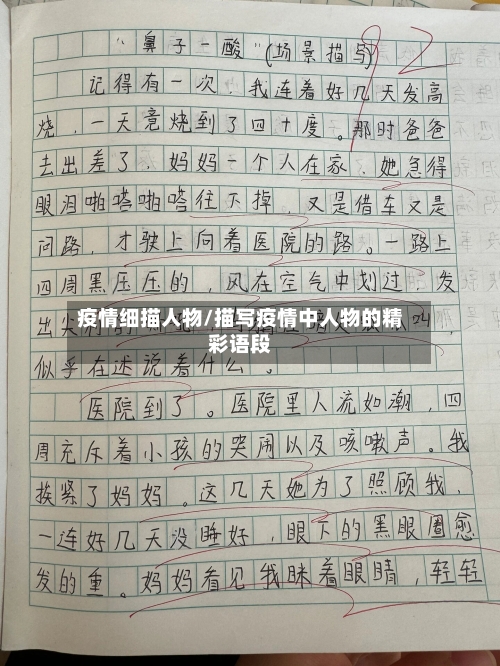 “鼻子一酸”(场景描写)
92
记得有一次,我连着好几天发高
烧,一天竟烧到了四十度。那时爸爸
去出差了,妈妈一个人在家,她急得
眼泪啪嗒啪嗒往下掉,又是借车又是
问路,才驶上向着医院的路。一路上
四周黑压压的,风在空气中划过,发
出尖
疫情细描人物/描写疫情中人物的精
彩语段
叫,
似乎在述说着什么。
医院到了。医院里人流如潮,四
周充斥着小孩的哭闹以及咳嗽声。我
挨紧了妈妈。这几天她为了照顾我,
一连好几天没睡好,眼下的黑眼圈愈
发的重。妈妈看见我眯着眼睛,轻轻